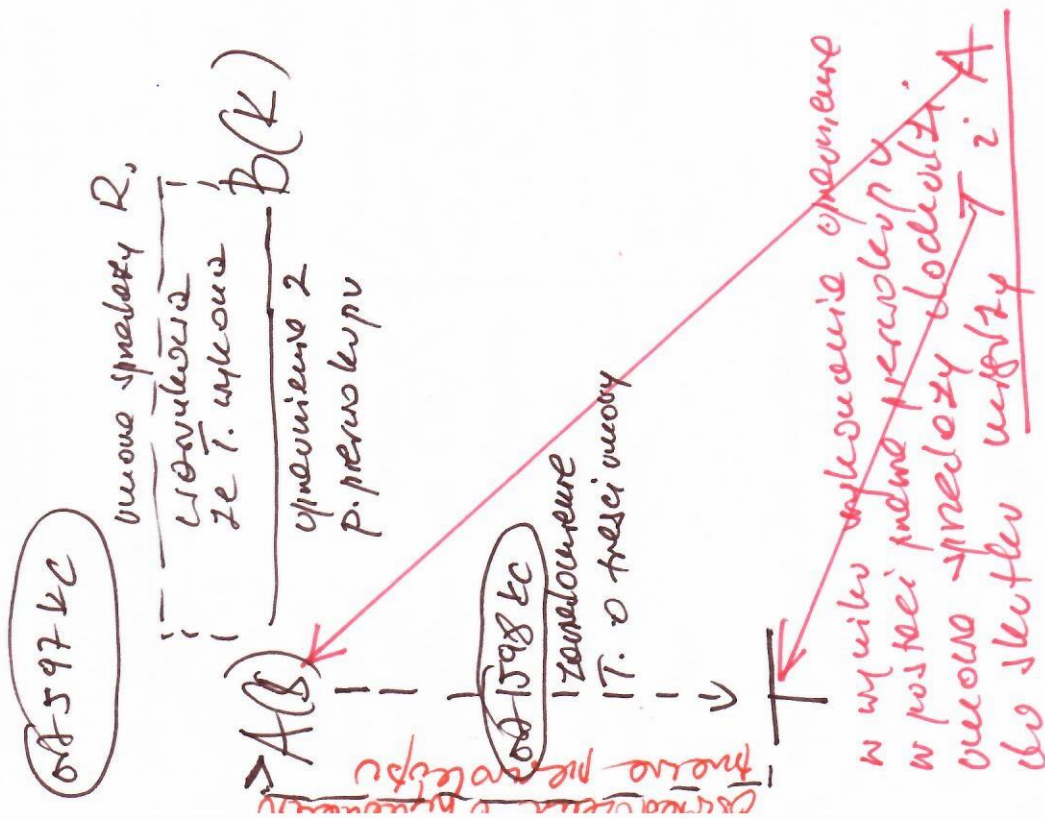 od 597 KC
umowa sprzedaży R.
warunkowa
że T. wykona
A(S)
B(K)
uprawnienie z
p. pierwokupu
od 598 KC
zawiadomienie
T. o treści umowy
T
prawa pierwokupu
w wyniku wykonania uprawnienie
w postaci prawa pierwokupu
umowa sprzedaży dochodzi
do skutku między T i A